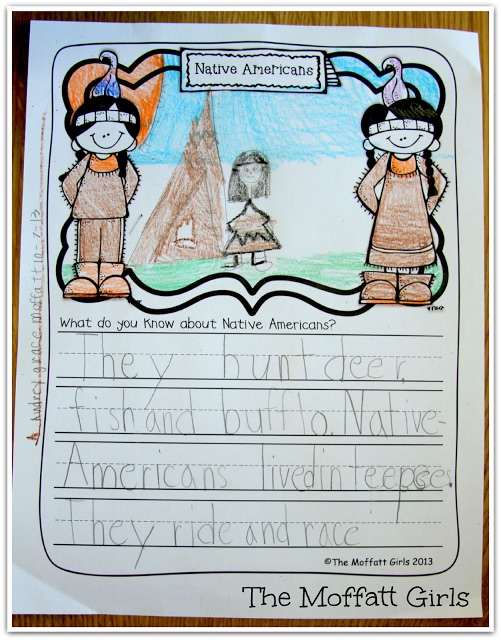 Native Americans
Audrey grace moffatt 10-2013
What do you know about Native Americans?
They hunt deer,
fish and bufflo. Native-
Americans lived in teepees.
They ride and race
©The Moffatt Girls 2013
The Moffatt Girls